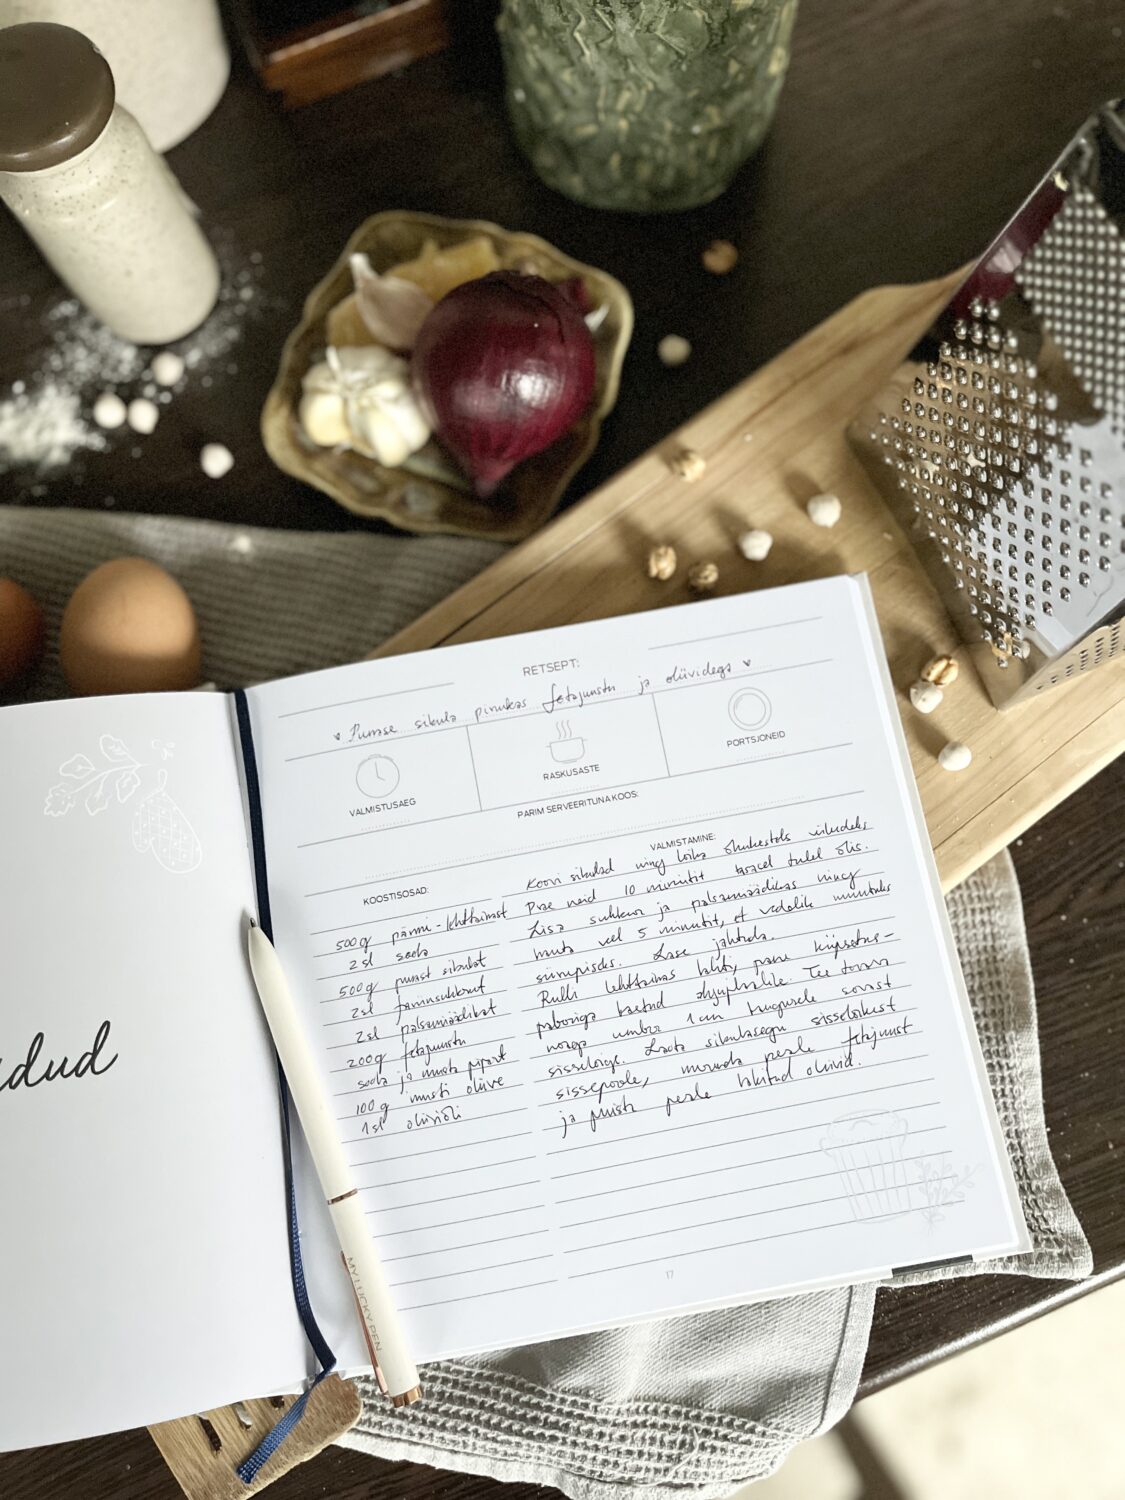 RETSEPT:
♥ Punase sibula pirukas fetajuustu ja oliividega ♥
VALMISTUSAEG
RASKUSASTE
PORTSJONEID
PARIM SERVEERITUNA KOOS:
KOOSTISOSAD:
500g pärmi-lehttainast
2 sl soola
500g punast sibulat
2sl fariinsuhkrut
2sl palsamiäädikat
200g fetajuustu
soola ja musta pipart
100 g musti oliive
1 sl oliiviõli
VALMISTAMINE:
Koori sibulad ning lõika õhukesteks viiludeks
Prae neid 10 minutit tasasel tulel õlis.
Lisa suhkur ja palsamiäädikas ning
hauta veel 5 minutit, et vedelik muutuks
siirupiseks. Lase jahtuda.
Rulli lehttainas lahti, pane küpsetus-
paberiga kaetud ahjuplaadile. Tee taina
noaga umbes 1 cm kaugusele servast
sisselõige. Laota sibulasegu sisselõikest
sissepoole, murenda peale fetajuust
ja puista peale hakitud oliivid.
17
dud
MY LUCKY PEN